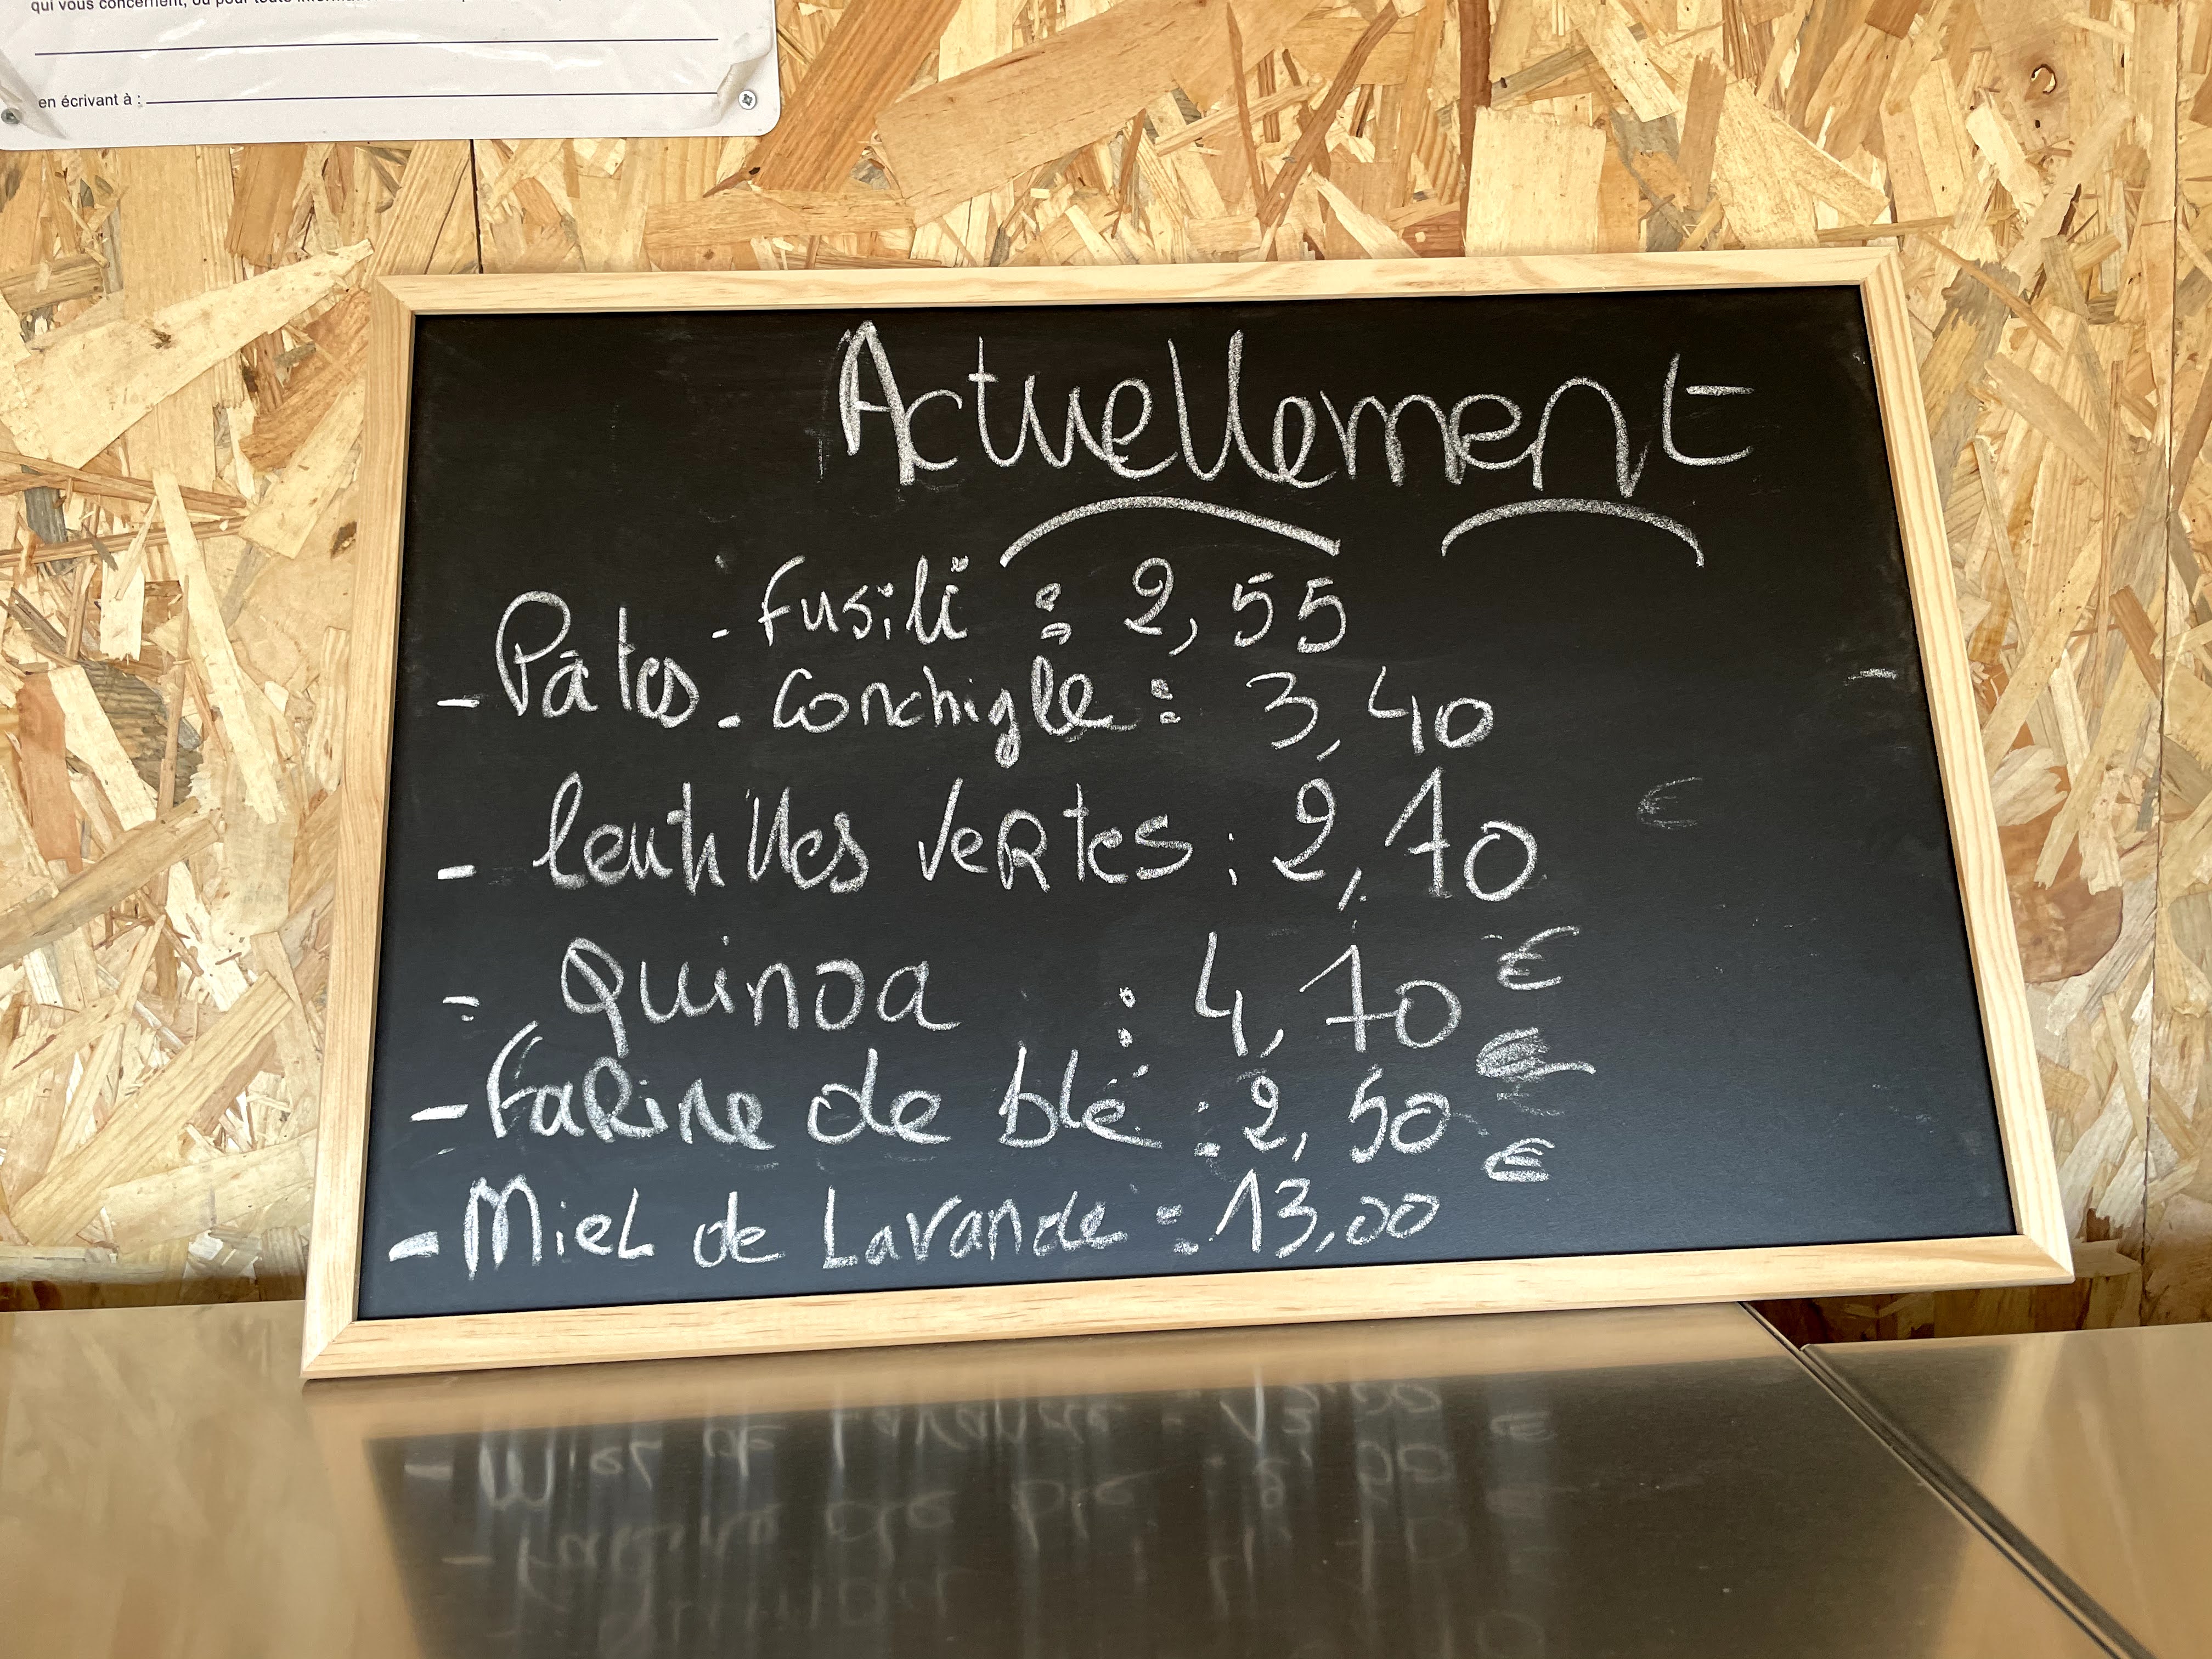 qui vous concernent, ou pour toute
en écrivant à :
Actuellement
- Pâtes - fusili : 2,55
- conchigle : 3,40
- lentilles vertes : 2,10
- quinoa : 4,10 €
- Farine de blé : 2,50
- Miel de Lavande : 13,00 €